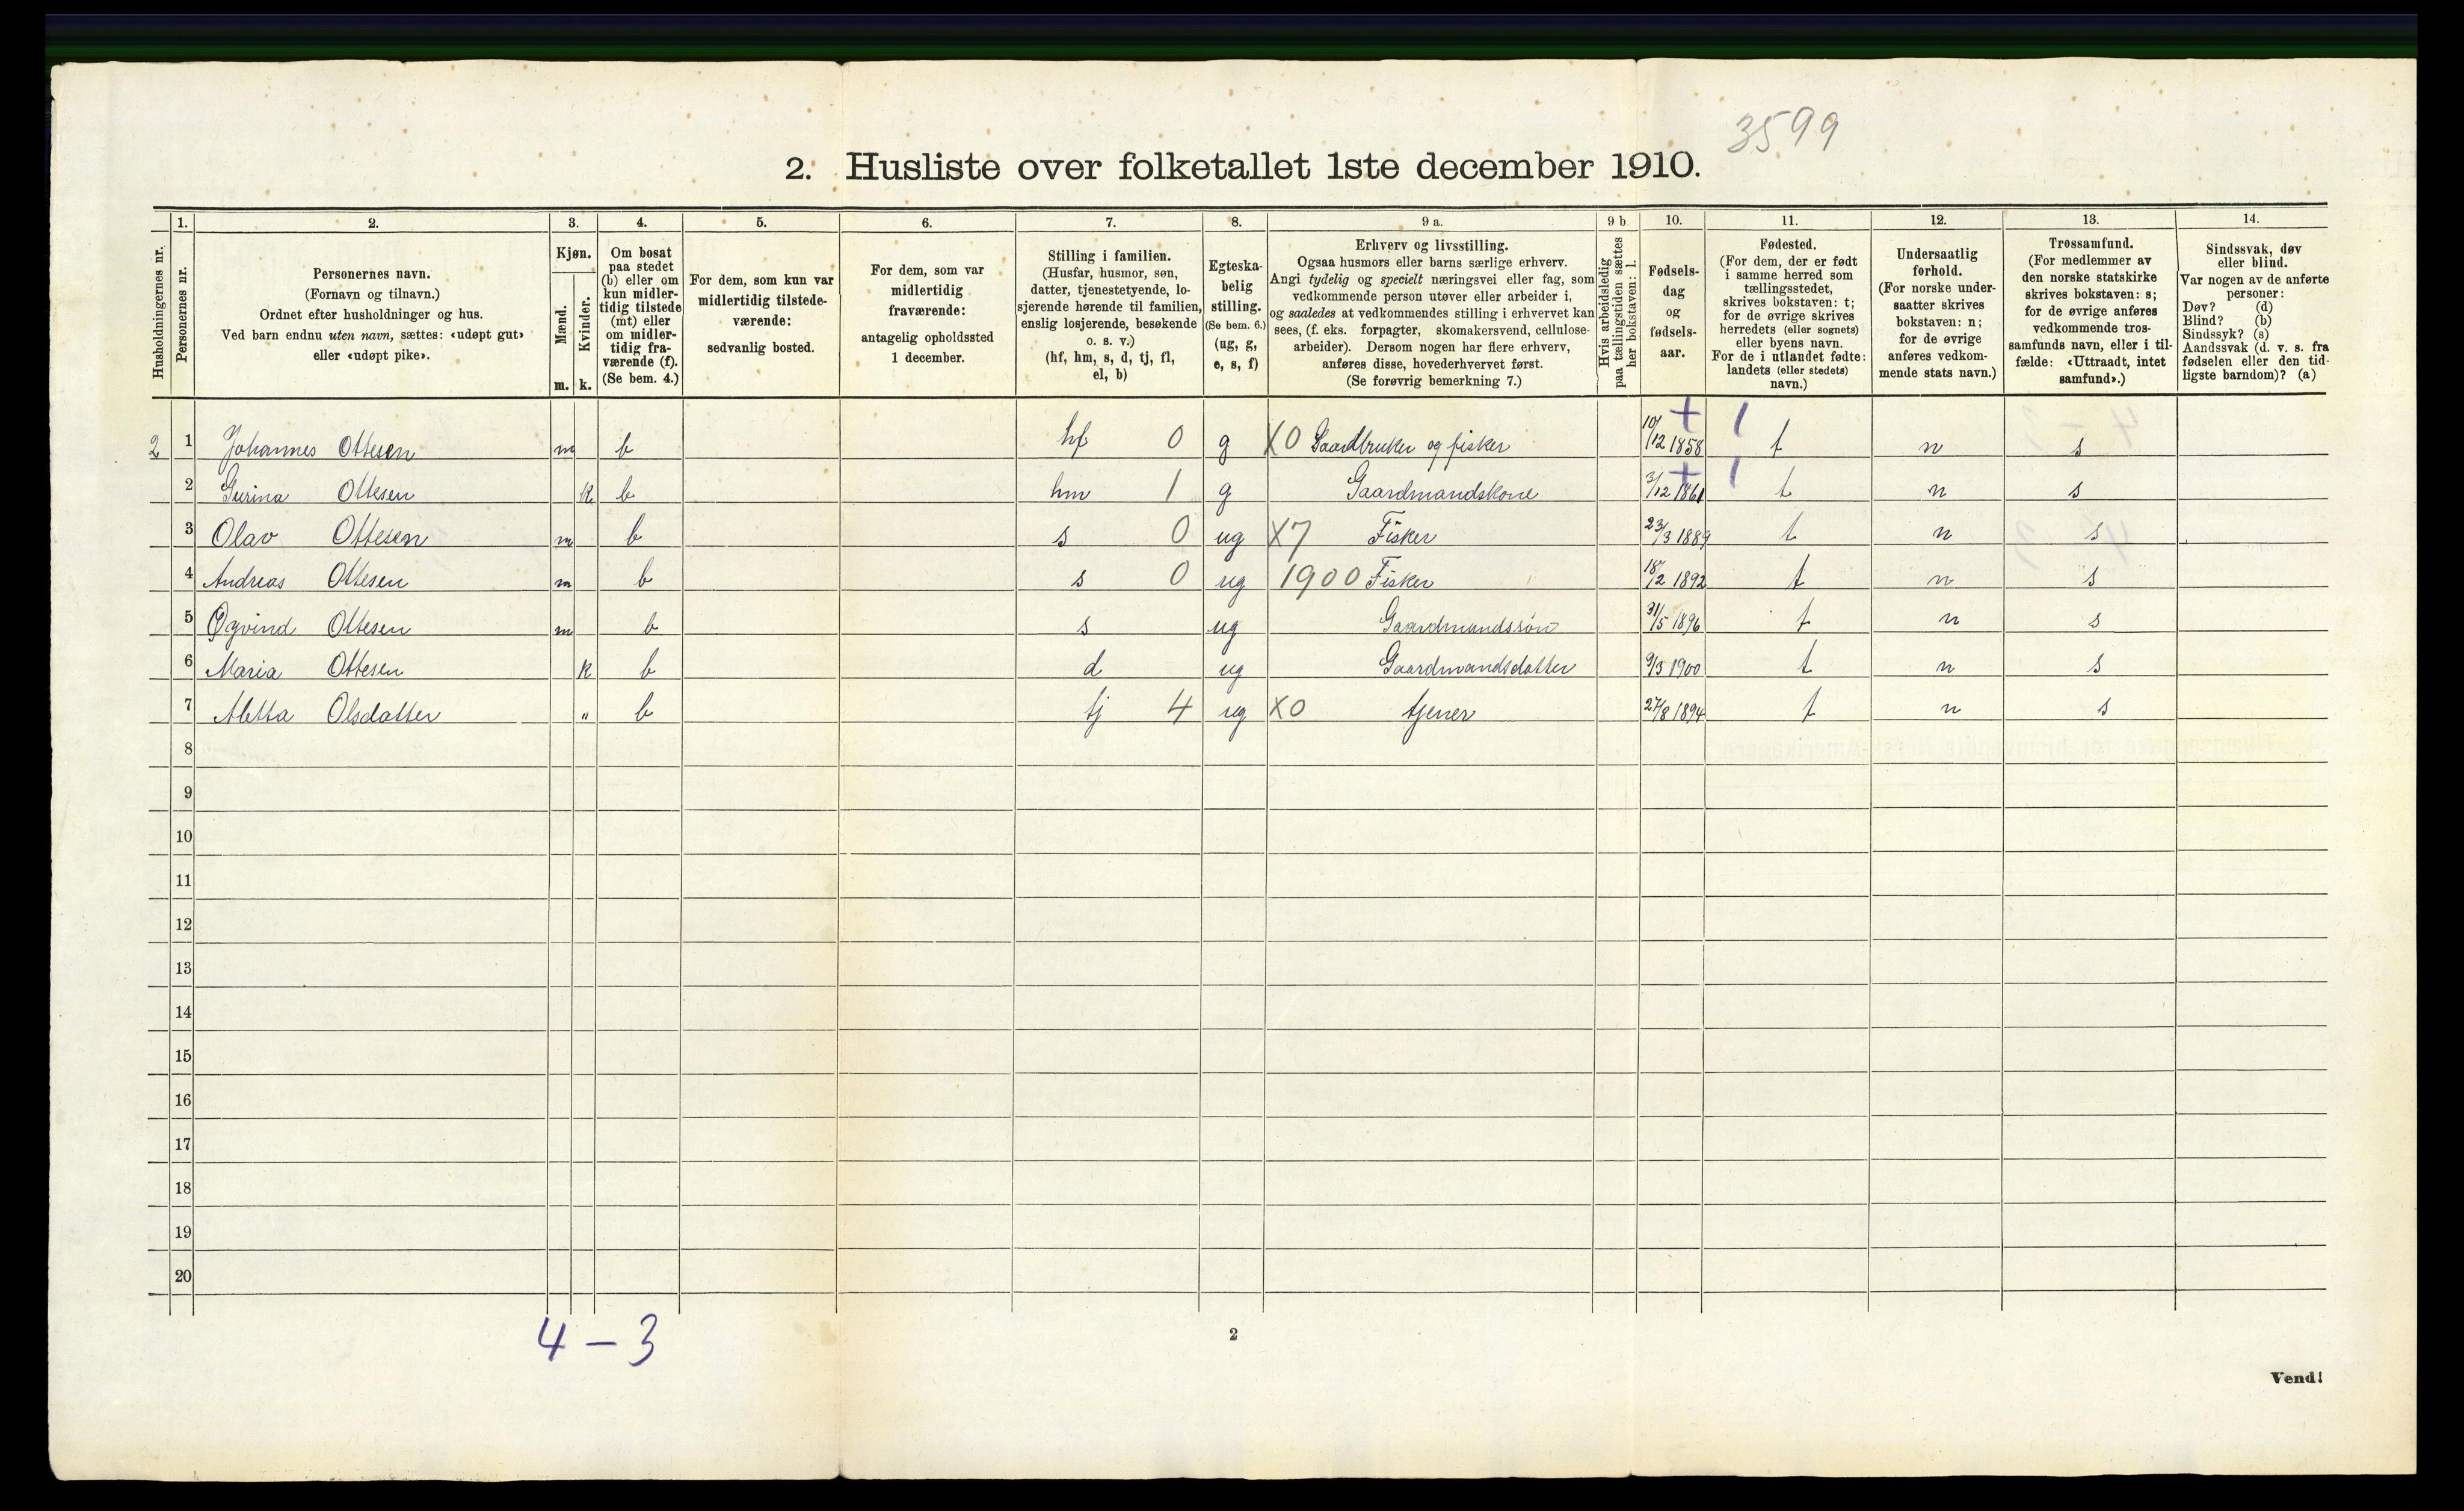 3599
2. Husliste over folketallet 1ste december 1910.
Husholdningernes nr.
1.
Personernes nr.
2.
Personernes navn.
(Fornavn og tilnavn.)
Ordnet efter husholdninger og hus.
Ved barn endnu uten navn, sættes: «udøpt gut»
eller «udøpt pike».
3.
Kjøn.
Mænd.
m.
Kvinder.
k.
4.
Om bosat
paa stedet
(b) eller om
kun midler-
tidig tilstede
(mt) eller
om midler-
tidig fra-
værende (f).
(Se bem. 4.)
5.
For dem, som kun var
midlertidig tilstede-
værende:
sedvanlig bosted.
6.
For dem, som var
midlertidig
fraværende:
antagelig opholdssted
1 december.
7.
Stilling i familien.
(Husfar, husmor, søn,
datter, tjenestetyende, lo-
sjerende hørende til familien,
enslig losjerende, besøkende
o. s. v.)
(hf, hm, s, d, tj, fl,
el, b)
8.
Egteska-
belig
stilling.
(Se bem. 6.)
(ug, g,
e, s, f)
9 a.
Erhverv og livsstilling.
Ogsaa husmors eller barns særlige erhverv.
Angi tydelig og specielt næringsvei eller fag, som
vedkommende person utøver eller arbeider i,
og saaledes at vedkommendes stilling i erhvervet kan
sees, (f. eks. forpagter, skomakersvend, cellulose-
arbeider). Dersom nogen har flere erhverv,
anføres disse, hovederhvervet først.
(Se forøvrig bemerkning 7.)
9 b
Hvis arbeidsledig
paa tællingstiden sættes
her bokstaven: l.
10.
Fødsels-
dag
og
fødsels-
aar.
11.
Fødested.
(For dem, der er født
i samme herred som
tællingsstedet,
skrives bokstaven: t;
for de øvrige skrives
herredets (eller sognets)
eller byens navn.
For de i utlandet fødte:
landets (eller stedets)
navn.)
12.
Undersaatlig
forhold.
(For norske under-
saatter skrives
bokstaven: n;
for de øvrige
anføres vedkom-
mende stats navn.)
13.
Trossamfund.
(For medlemmer av
den norske statskirke
skrives bokstaven: s;
for de øvrige anføres
vedkommende tros-
samfunds navn, eller i til-
fælde: «Uttraadt, intet
samfund».)
14.
Sindssvak, døv
eller blind.
Var nogen av de anførte
personer:
Døv? (d)
Blind? (b)
Sindssyk? (s)
Aandssvak (d. v. s. fra
fødselen eller den tid-
ligste barndom)? (a)
2 1 Johannes Ottesen m b hf 0 g X0 Gaardbruker og fisker 10/12 1858 + 1 t n s
2 Gurina Ottesen k b hm 1 g Gaardmandskone 3/12 1861 + 1 t n s
3 Olav Ottesen m b s 0 ug X7 Fisker 23/3 1889 t n s
4 Andreas Ottesen m b s 0 ug 1900 Fisker 18/2 1892 t n s
5 Øyvind Ottesen m b s ug Gaardmandssøn 31/5 1896 t n s
6 Maria Ottesen k b d ug Gaardmandsdatter 9/3 1900 t n s
7 Aletta Olsdatter " b tj 4 ug X0 tjener 27/8 1894 t n s
8
9
10
11
12
13
14
15
16
17
18
19
20
4 – 3
2
Vend!